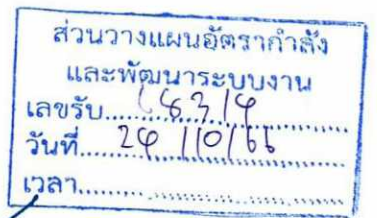 ส่วนวางแผนอัตรากำลัง
และพัฒนาระบบงาน
เลขรับ.....
วันที่..... 24 /10/66
เวลา.....